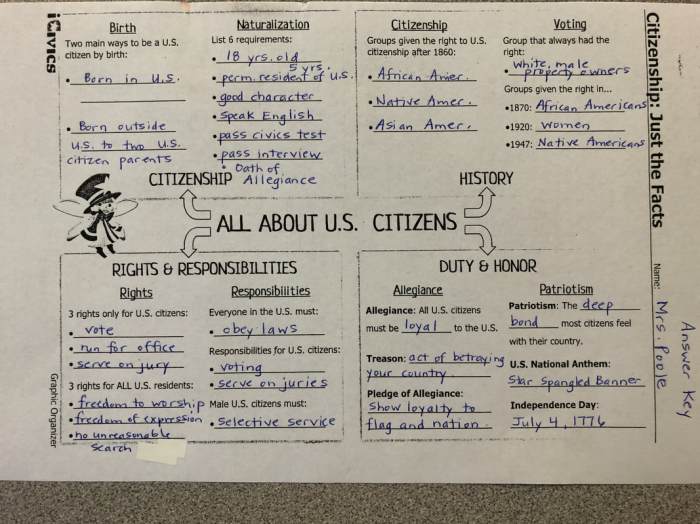 iCivics
Birth
Two main ways to be a U.S.
citizen by birth:
• Born in U.S.
• Born outside
U.S. to two U.S.
citizen parents
Naturalization
List 6 requirements:
• 18 yrs. old
5 yrs.
• perm. resident of U.S.
• good character
• Speak English
• pass civics test
• pass interview
• Oath of
Allegiance
CITIZENSHIP
Citizenship
Groups given the right to U.S.
citizenship after 1860:
• African Amer.
• Native Amer.
• Asian Amer.
Voting
Group that always had the
right:
white, male
property owners
Groups given the right in...
•1870: African Americans
•1920: women
•1947: Native Americans
HISTORY
ALL ABOUT U.S. CITIZENS
RIGHTS & RESPONSIBILITIES
Rights
3 rights only for U.S. citizens:
• vote
• run for office
• serve on jury
3 rights for ALL U.S. residents:
• freedom to worship
• freedom of expression
• no unreasonable
search
Responsibilities
Everyone in the U.S. must:
• obey laws
Responsibilities for U.S. citizens:
• voting
• serve on juries
Male U.S. citizens must:
• selective service
DUTY & HONOR
Allegiance
Allegiance: All U.S. citizens
must be loyal to the U.S.
Treason: act of betraying
your country
Pledge of Allegiance:
Show loyalty to
flag and nation.
Patriotism
Patriotism: The deep
bond most citizens feel
with their country.
U.S. National Anthem:
Star Spangled Banner
Independence Day:
July 4, 1776
Citizenship: Just the Facts
Name: Mrs. Poole
Answer Key
Graphic Organizer